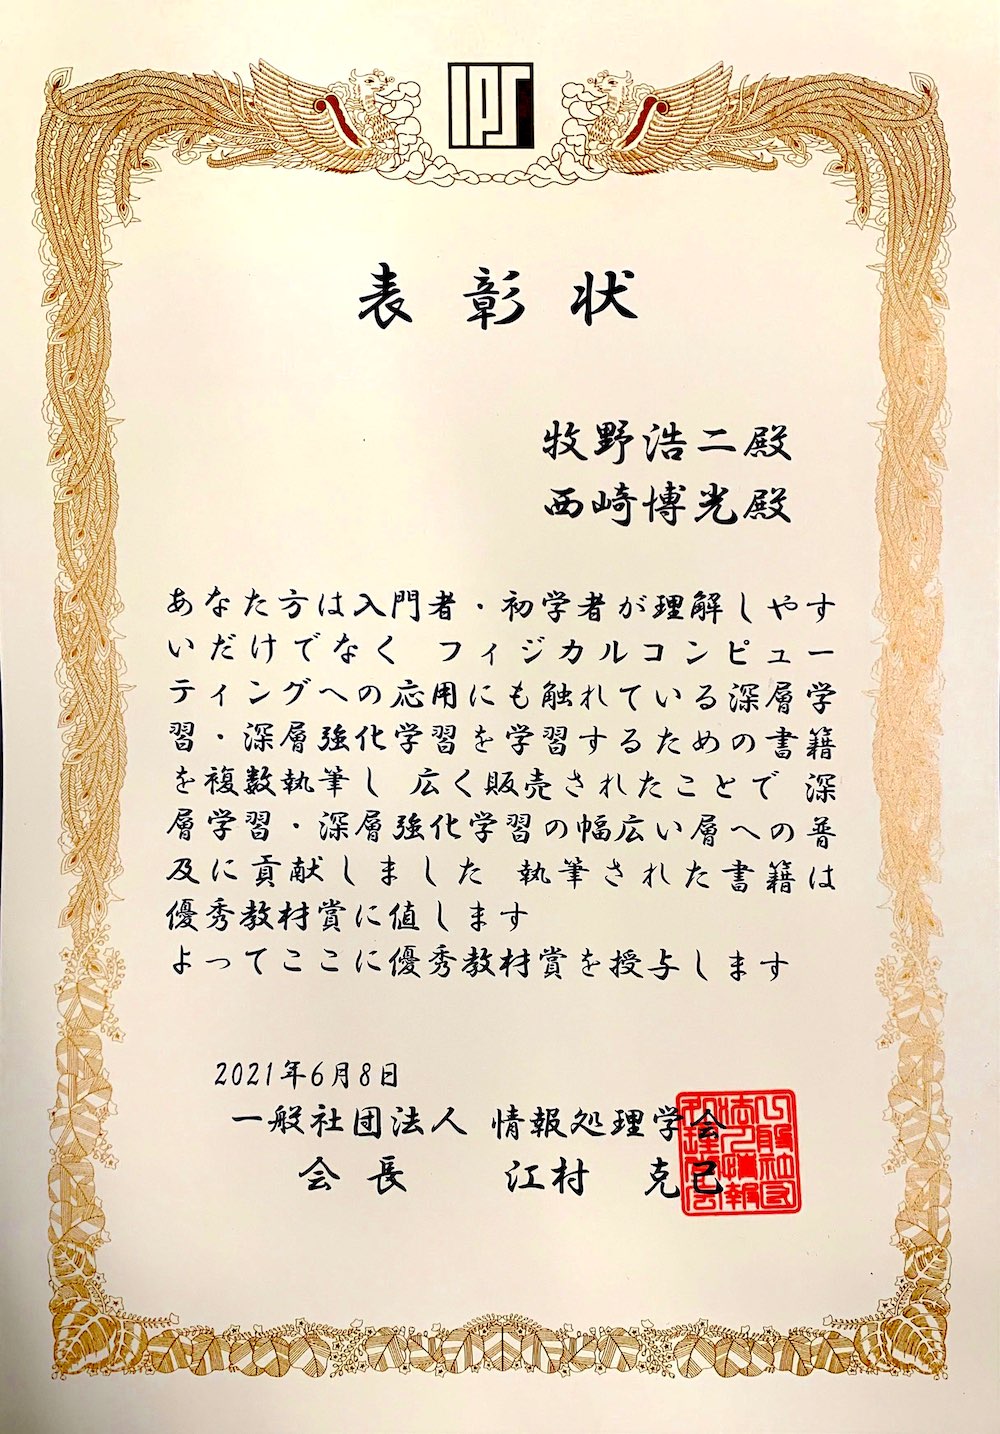 IPSJ
表彰状
牧野浩二殿
西崎博光殿
あなた方は入門者・初学者が理解しやす
いだけでなく フィジカルコンピュー
ティングへの応用にも触れている深層学
習・深層強化学習を学習するための書籍
を複数執筆し 広く販売されたことで 深
層学習・深層強化学習の幅広い層への普
及に貢献しました 執筆された書籍は
優秀教材賞に値します
よってここに優秀教材賞を授与します
2021年6月8日
一般社団法人 情報処理学会
会長 江村 克己